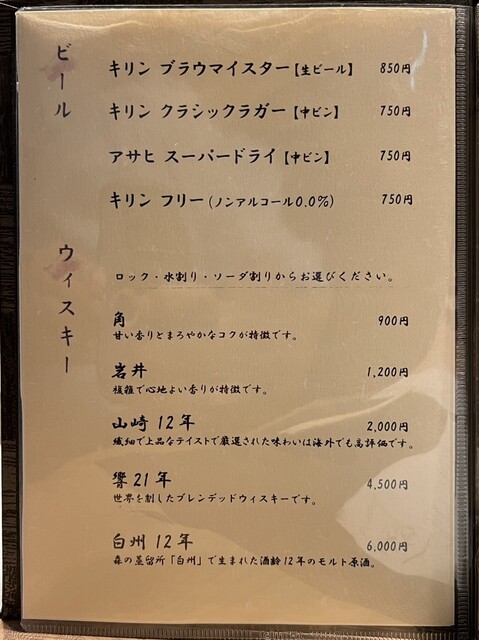 ビール
キリン ブラウマイスター【生ビール】 850円
キリン クラシックラガー【中ビン】 750円
アサヒ スーパードライ【中ビン】 750円
キリン フリー(ノンアルコール0.0%) 750円
ウィスキー
ロック・水割り・ソーダ割りからお選びください。
角 900円
甘い香りとまろやかなコクが特徴です。
岩井 1,200円
複雑で心地よい香りが特徴です。
山崎 12年 2,000円
繊細で上品なテイストで厳選された味わいは海外でも高評価です。
響 21年 4,500円
世界を制したブレンデッドウィスキーです。
白州 12年 6,000円
森の蒸留所「白州」で生まれた酒齢12年のモルト原酒。